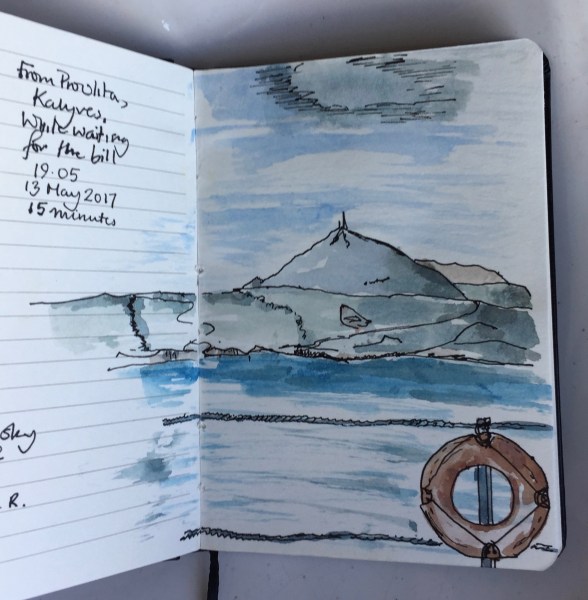 From Provlita,
Kalyves.
While waiting
for the bill
19.05
13 May 2017
15 minutes
R.